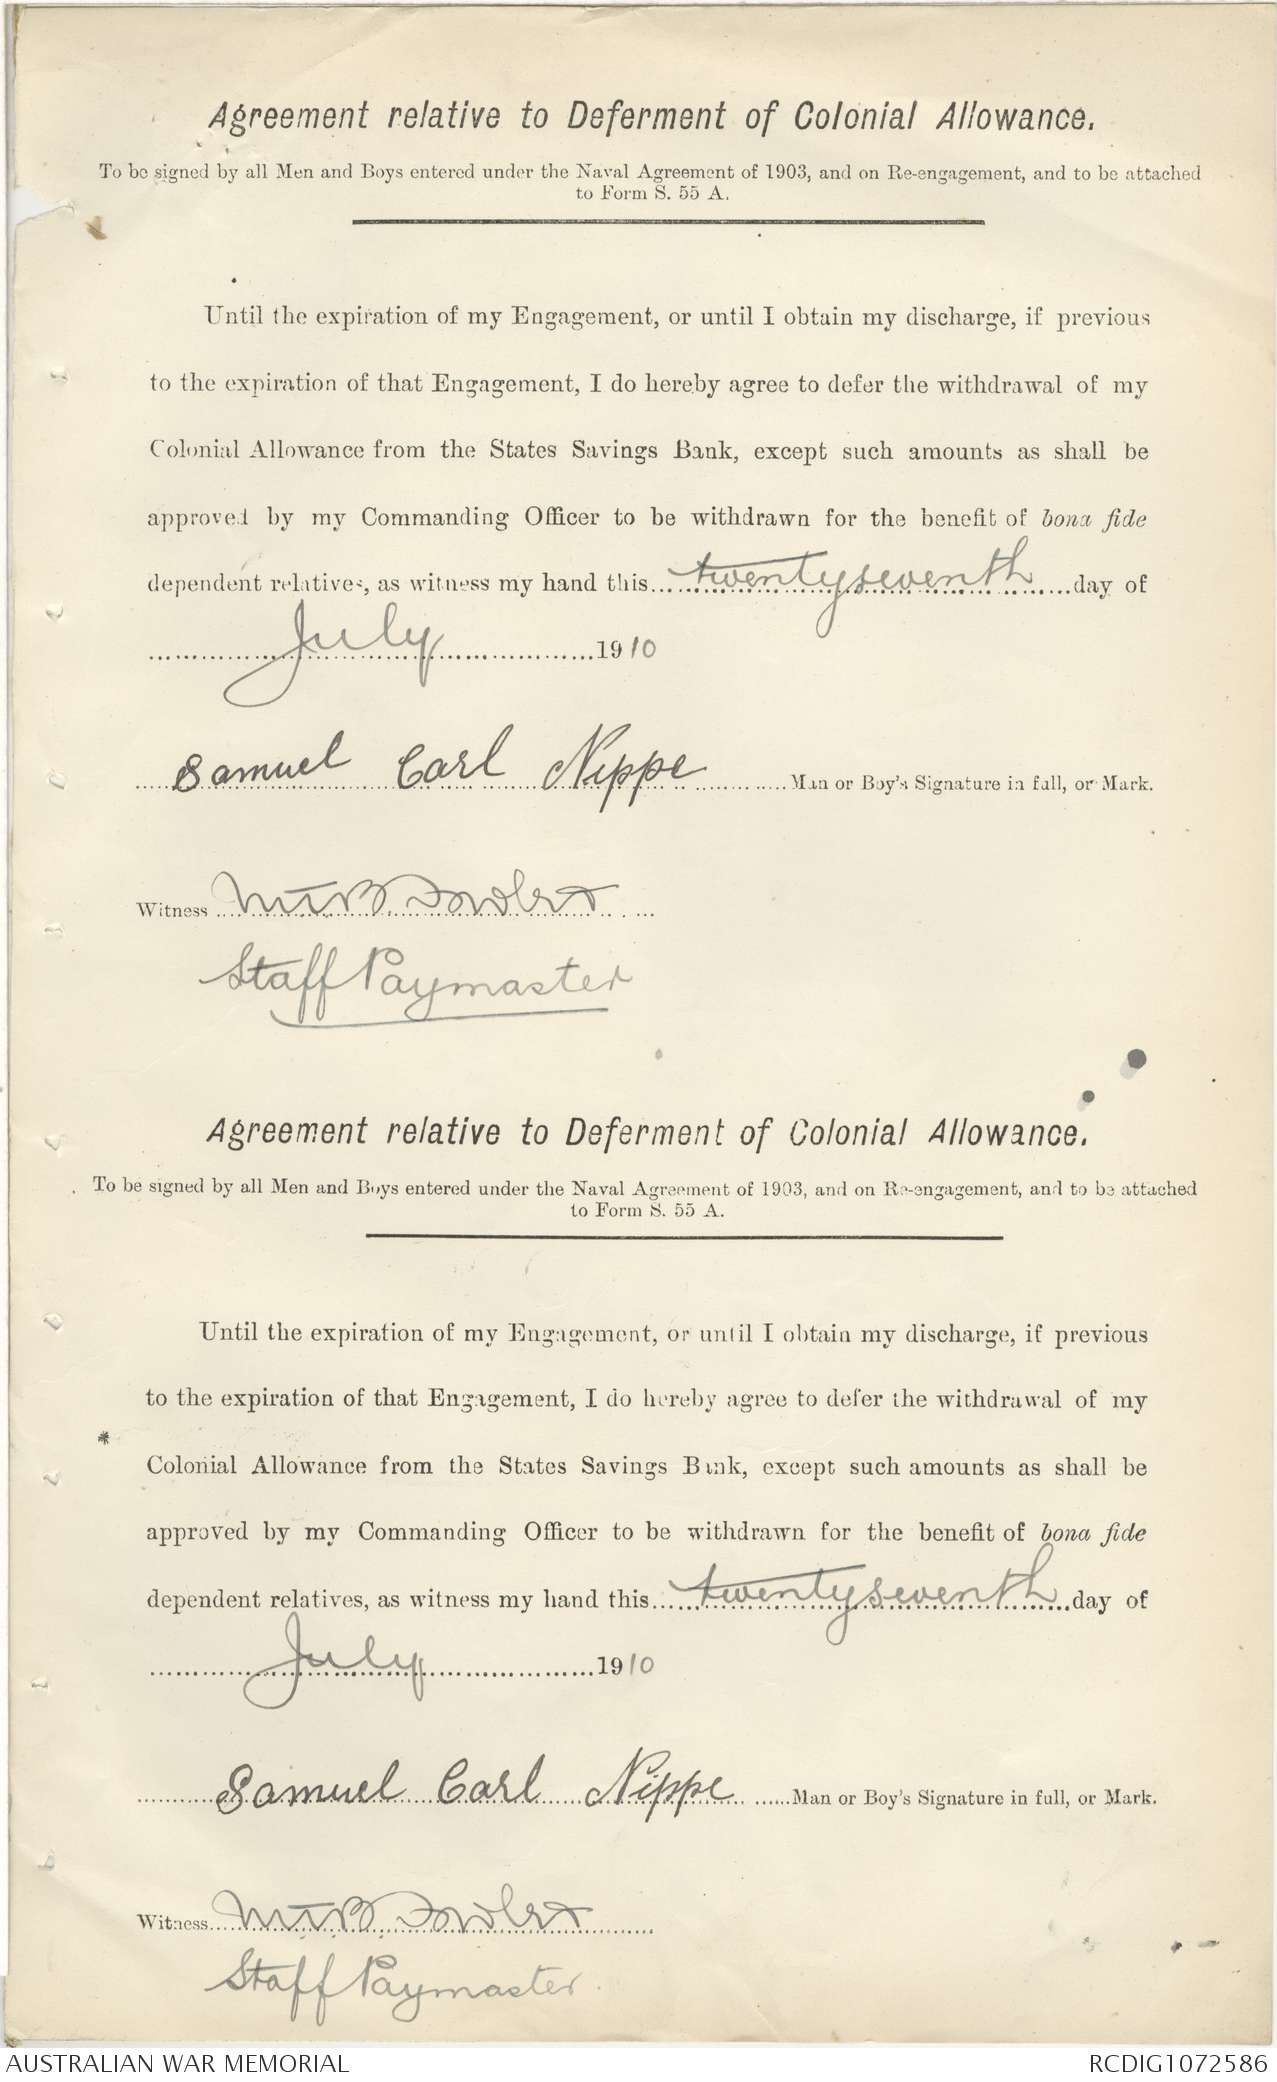 Agreement relative to Deferment of Colonial Allowance.
To be signed by all Men and Boys entered under the Naval Agreement of 1903, and on Re-engagement, and to be attached
to Form S. 55 A.
Until the expiration of my Engagement, or until I obtain my discharge, if previous
to the expiration of that Engagement, I do hereby agree to defer the withdrawal of my
Colonial Allowance from the States Savings Bank, except such amounts as shall be
approved by my Commanding Officer to be withdrawn for the benefit of bona fide
dependent relatives, as witness my hand this twentyseventh day of
July 1910
Samuel Carl Nippe Man or Boy's Signature in full, or Mark.
Witness
Staff Paymaster
Agreement relative to Deferment of Colonial Allowance.
To be signed by all Men and Boys entered under the Naval Agreement of 1903, and on Re-engagement, and to be attached
to Form S. 55 A.
Until the expiration of my Engagement, or until I obtain my discharge, if previous
to the expiration of that Engagement, I do hereby agree to defer the withdrawal of my
*
Colonial Allowance from the States Savings Bank, except such amounts as shall be
approved by my Commanding Officer to be withdrawn for the benefit of bona fide
dependent relatives, as witness my hand this twentyseventh day of
July 1910
Samuel Carl Nippe Man or Boy's Signature in full, or Mark.
Witness
Staff Paymaster
AUSTRALIAN WAR MEMORIAL
RCDIG1072586